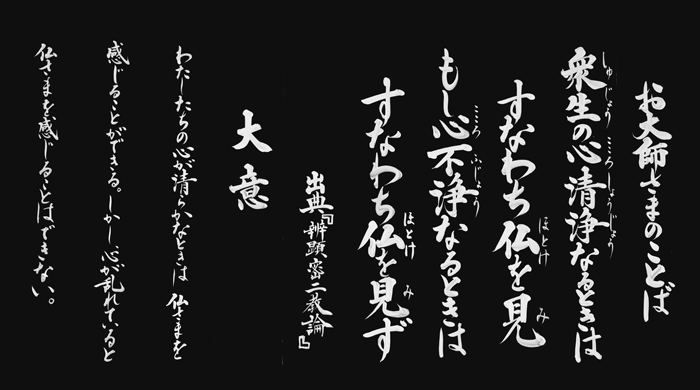 お大師さまのことば
衆生の心清浄なるときは
すなわち仏を見
もし心不浄なるときは
すなわち仏を見ず
出典『辨顕密二教論』
大意
わたしたちの心が清らかなときは 仏さまを
感じることができる。しかし心が乱れていると
仏さまを感じることはできない。